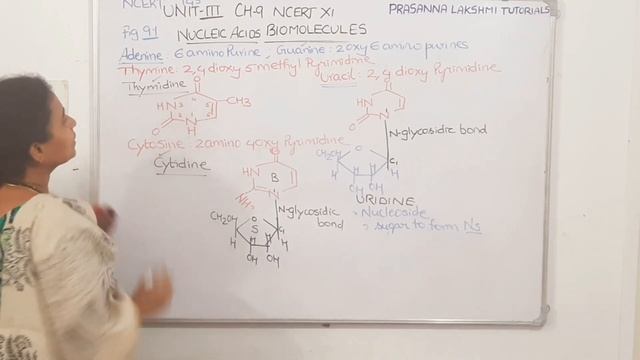 NCERT
UNIT-III CH-9 NCERT XI
PRASANNA LAKSHMI TUTORIALS
Fig 9.1 NUCLEIC ACIDS BIOMOLECULES
Adenine: 6 amino Purine, Guanine: 2 oxy 6 amino purines
Thymine: 2,4 dioxy 5 methyl Pyrimidine
Thymidine
Uracil: 2,4 dioxy Pyrimidine
O
HN3
CH3
O
N
H
O
HN
O
N
N-glycosidic bond
CH2OH
O
C1
H
H
OH
OH
URIDINE
Nucleoside
sugar to form Ns
Cytosine: 2 amino 4 oxy Pyrimidine
Cytidine
O
HN
B
N
NH2
N-glycosidic
bond
CH2OH
O
S
C1
H
H
OH
OH